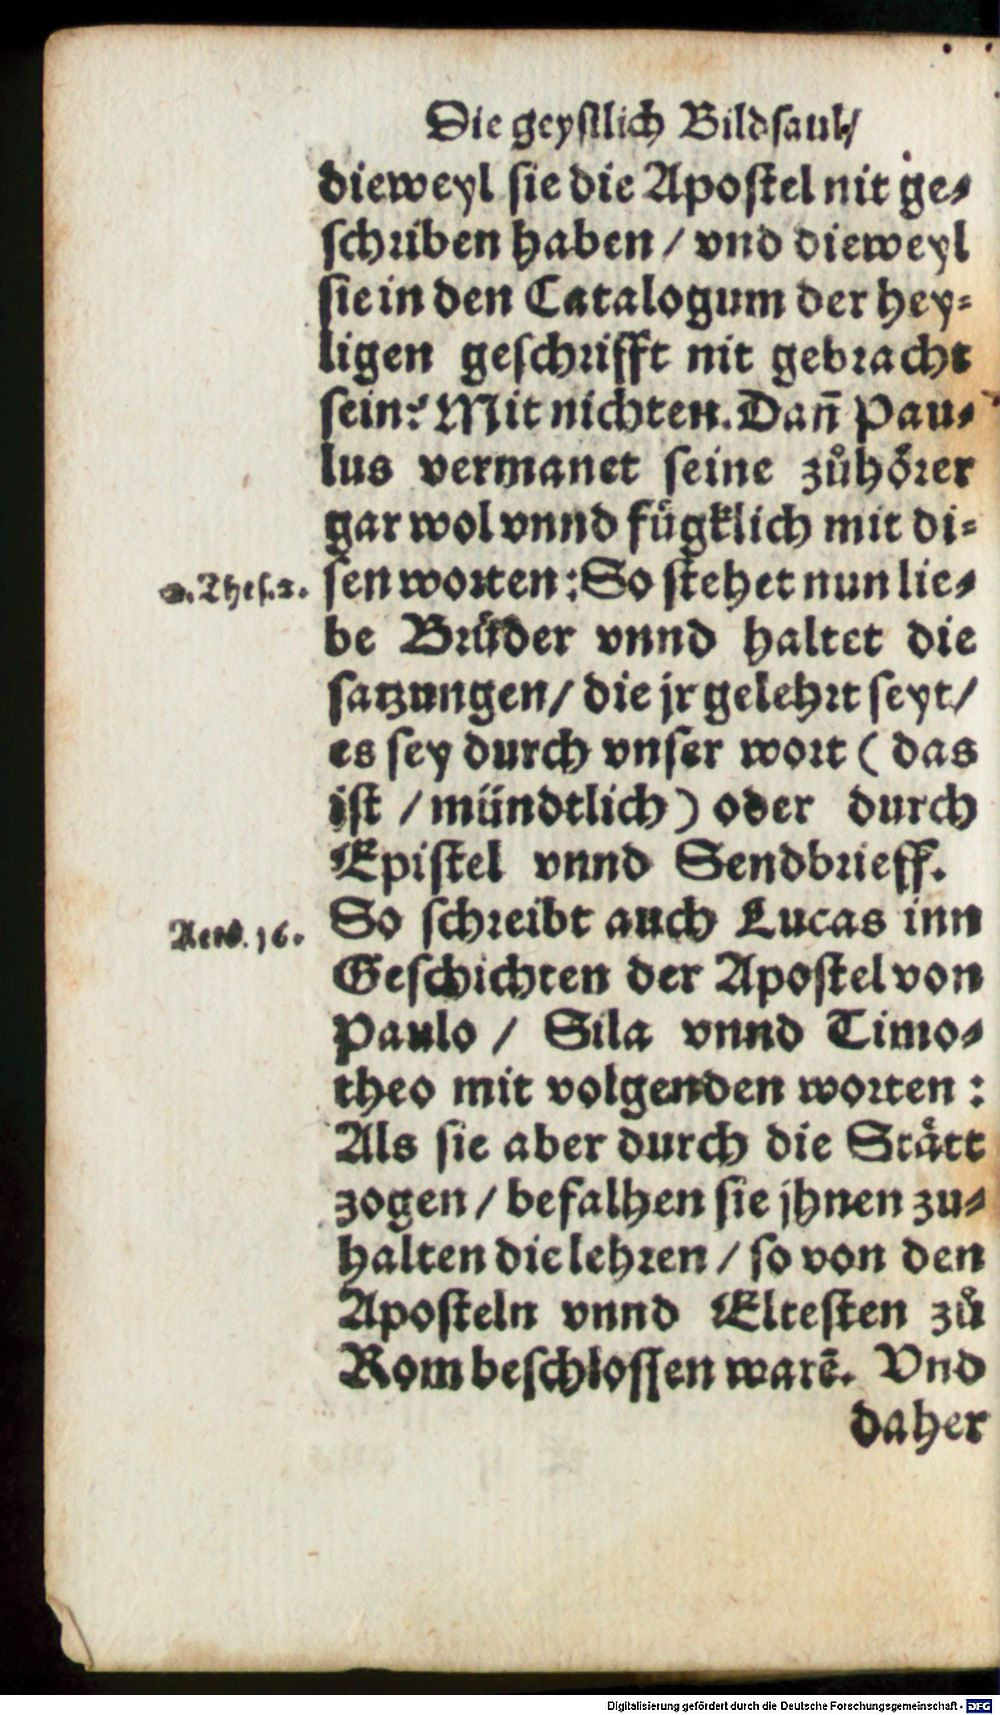 Die geystlich Bildsaul/
dieweyl sie die Apostel nit ge-
schriben haben / vnd dieweyl
sie in den Catalogum der hey-
ligen geschrifft nit gebracht
sein? Mit nichten. Dañ Pau-
lus vermanet seine zůhörer
gar wol vnnd fügklich mit di-
2. Thes. 2. sen worten: So stehet nun lie-
be Brůder vnnd haltet die
satzungen / die jr gelehrt seyt /
es sey durch vnser wort ( das
ist / mündtlich ) oder durch
Epistel vnnd Sendbrieff.
Acto. 16. So schreibt auch Lucas inn
Geschichten der Apostel von
Paulo / Sila vnnd Timo-
theo mit volgenden worten:
Als sie aber durch die Stätt
zogen / befalhen sie jhnen zu-
halten die lehren / so von den
Aposteln vnnd Eltesten zů
Rom beschlossen warē. Vnd
daher
Digitalisierung gefördert durch die Deutsche Forschungsgemeinschaft - DFG